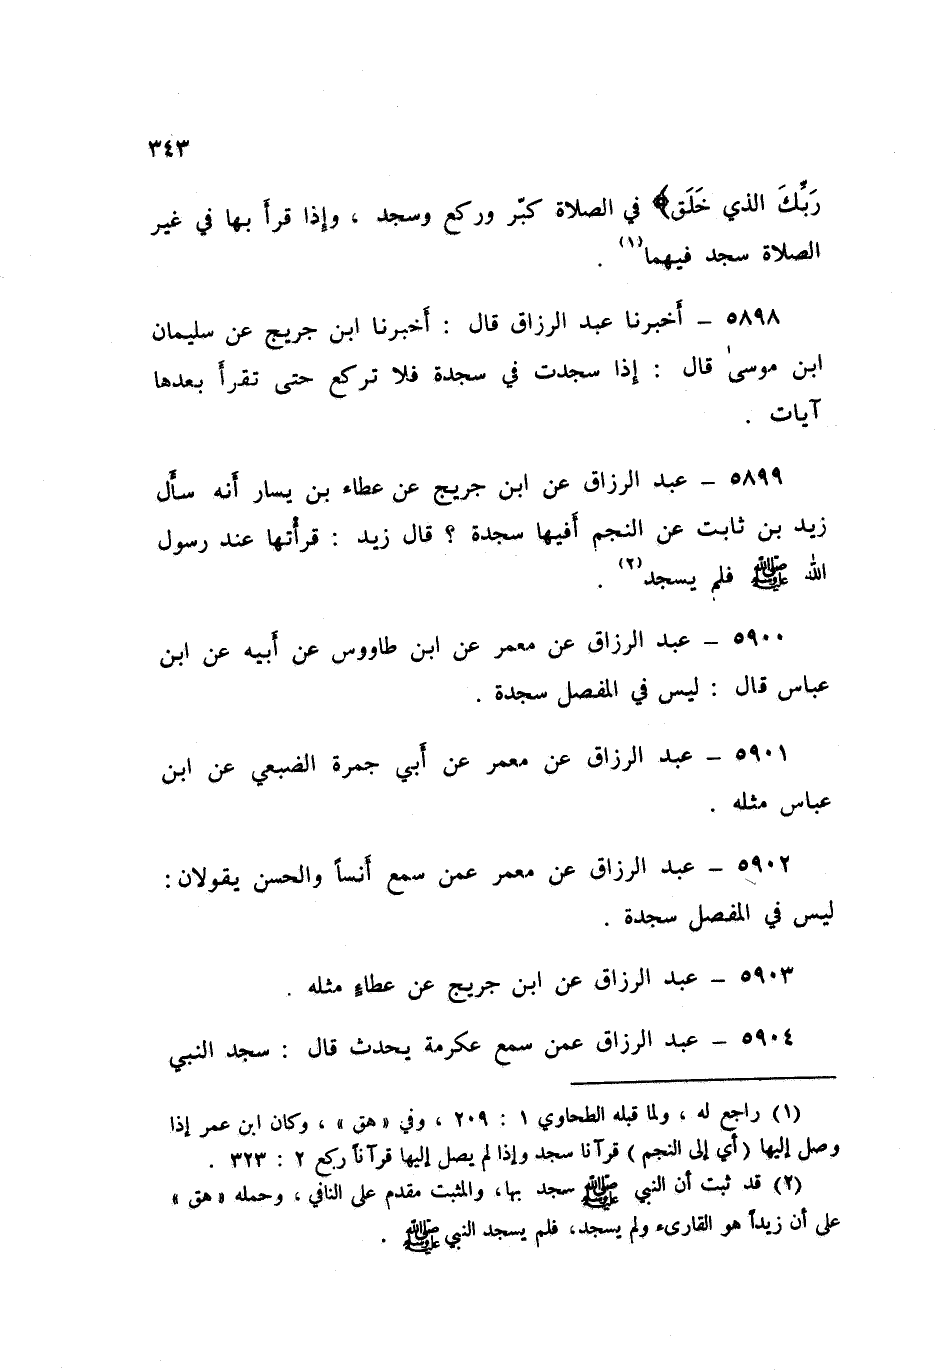 ٣٤٣
رَبِّكَ الذي خَلَق﴾ في الصلاة كبّر وركع وسجد ، وإذا قرأ بها في غير
الصلاة سجد فيهما(١) .
٥٨٩٨ – أخبرنا عبد الرزاق قال : أخبرنا ابن جريج عن سليمان
ابن موسىٰ قال : إذا سجدت في سجدة فلا تركع حتى تقرأ بعدها
آيات .
٥٨٩٩ – عبد الرزاق عن ابن جريج عن عطاء بن يسار أنه سأل
زيد بن ثابت عن النجم أفيها سجدة ؟ قال زيد : قرأتها عند رسول
الله ﷺ فلم يسجد(٢) .
٥٩٠٠ – عبد الرزاق عن معمر عن ابن طاووس عن أبيه عن ابن
عباس قال : ليس في المفصل سجدة .
٥٩٠١ – عبد الرزاق عن معمر عن أبي جمرة الضبعي عن ابن
عباس مثله .
٥٩٠٢ – عبد الرزاق عن معمر عمن سمع أنساً والحسن يقولان :
ليس في المفصل سجدة .
٥٩٠٣ – عبد الرزاق عن ابن جريج عن عطاءٍ مثله .
٥٩٠٤ – عبد الرزاق عمن سمع عكرمة يحدث قال : سجد النبي
(١) راجع له ، ولما قبله الطحاوي ١ : ٢٠٩ ، وفي « هق » ، وكان ابن عمر إذا
وصل إليها (أي إلى النجم ) قرآنا سجد وإذا لم يصل إليها قرآناً ركع ٢ : ٣٢٣ .
(٢) قد ثبت أن النبي ﷺ سجد بها، والمثبت مقدم على النافي ، وحمله « هق »
على أن زيداً هو القارىء ولم يسجد، فلم يسجد النبي ﷺ .